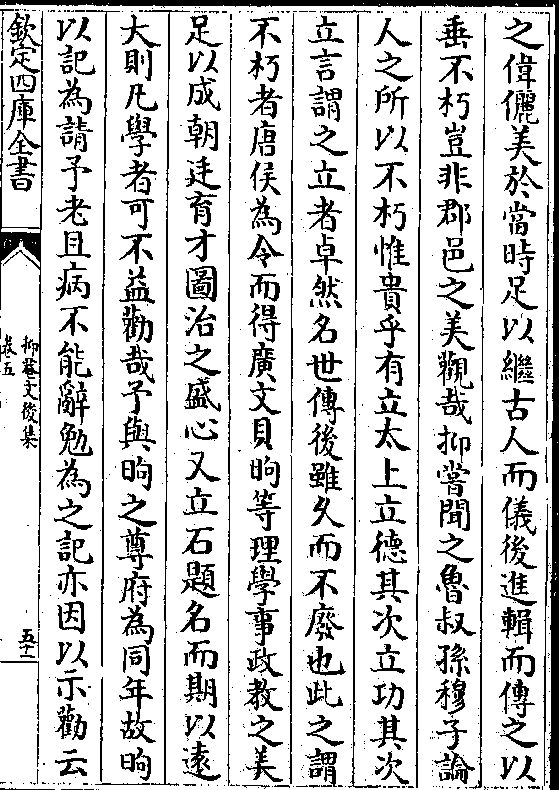 之偉儷美於當時足以繼古人而儀後進輯而傳之以
垂不朽豈非郡邑之美觀哉抑嘗聞之魯叔孫穆子論
人之所以不朽惟貴乎有立太上立德其次立功其次
立言謂之立者卓然名世傳後雖久而不廢也此之謂
不朽者唐侯為令而得廣文貝晌等理學事政教之美
足以成朝廷育才圖治之盛心又立石題名而期以遠
大則凡學者可不益勸哉予與晌之尊府為同年故晌
以記為請予老且病不能辭勉為之記亦因以示勸云
欽定四庫全書
抑菴文後集
卷五
五十一